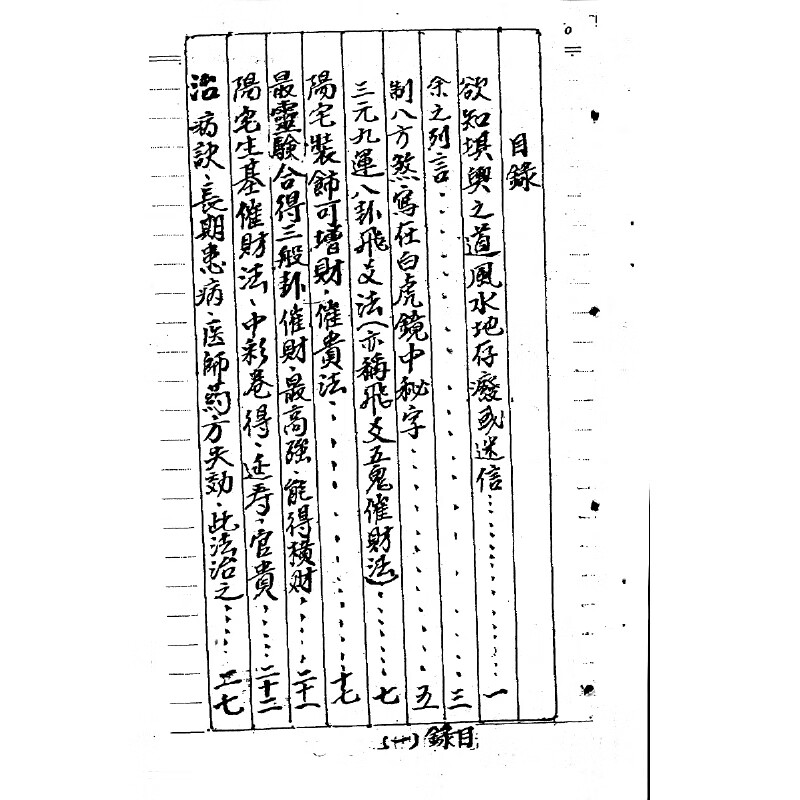 目錄
欲知堪輿之道風水地存廢或迷信……一
余之列言……三
制八方煞寫在白虎鏡中秘字……五
三元九運八卦飛爻法(亦稱飛爻五鬼催財法)……七
陽宅裝飾可增財、催貴法……十七
最靈驗合得三般卦催財、最高強、能得橫財……二十一
陽宅生基催財法、中彩卷得、延寿、官貴……二十二
治病訣、長期患病、医師葯方失効、此法治之……二七
目錄(一)